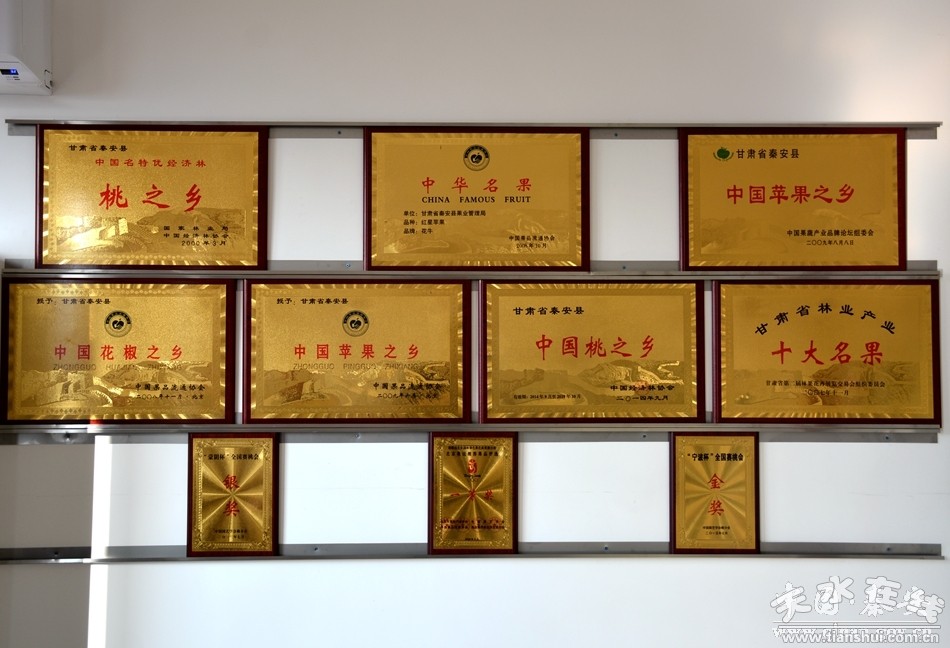 甘肃省秦安县
中国名特优经济林
桃之乡
国家林业局
中国经济林协会
2000年3月
中华名果
CHINA FAMOUS FRUIT
单位：甘肃省秦安县果业管理局
品种：红星苹果
品牌：花牛
中国果品流通协会
甘肃省秦安县
中国苹果之乡
中国果蔬产业品牌论坛组委会
二〇〇九年八月八日
授予：甘肃省秦安县
中国花椒之乡
ZHONGGUO HUAJIAO ZHIXIANG
中国果品流通协会
二〇〇八年十一月·北京
授予：甘肃省秦安县
中国苹果之乡
ZHONGGUO PINGGUO ZHIXIANG
中国果品流通协会
甘肃省秦安县
中国桃之乡
中国经济林协会
二〇一四年九月
甘肃省林业产业
十大名果
"蒙阴杯"全国赛桃会
银奖
一等奖
"宁波杯"全国赛桃会
金奖
天水在线
www.tianshui.com.cn